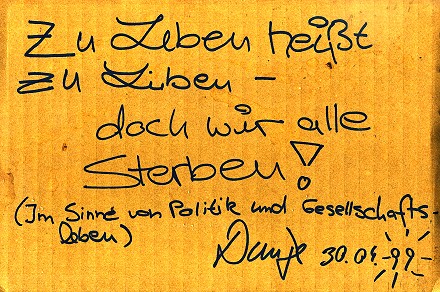 Zu Leben heißt
zu Liben -
doch wir alle
Sterben!
(Im Sinne von Politik und Gesellschafts
leben)
30.04.-99-